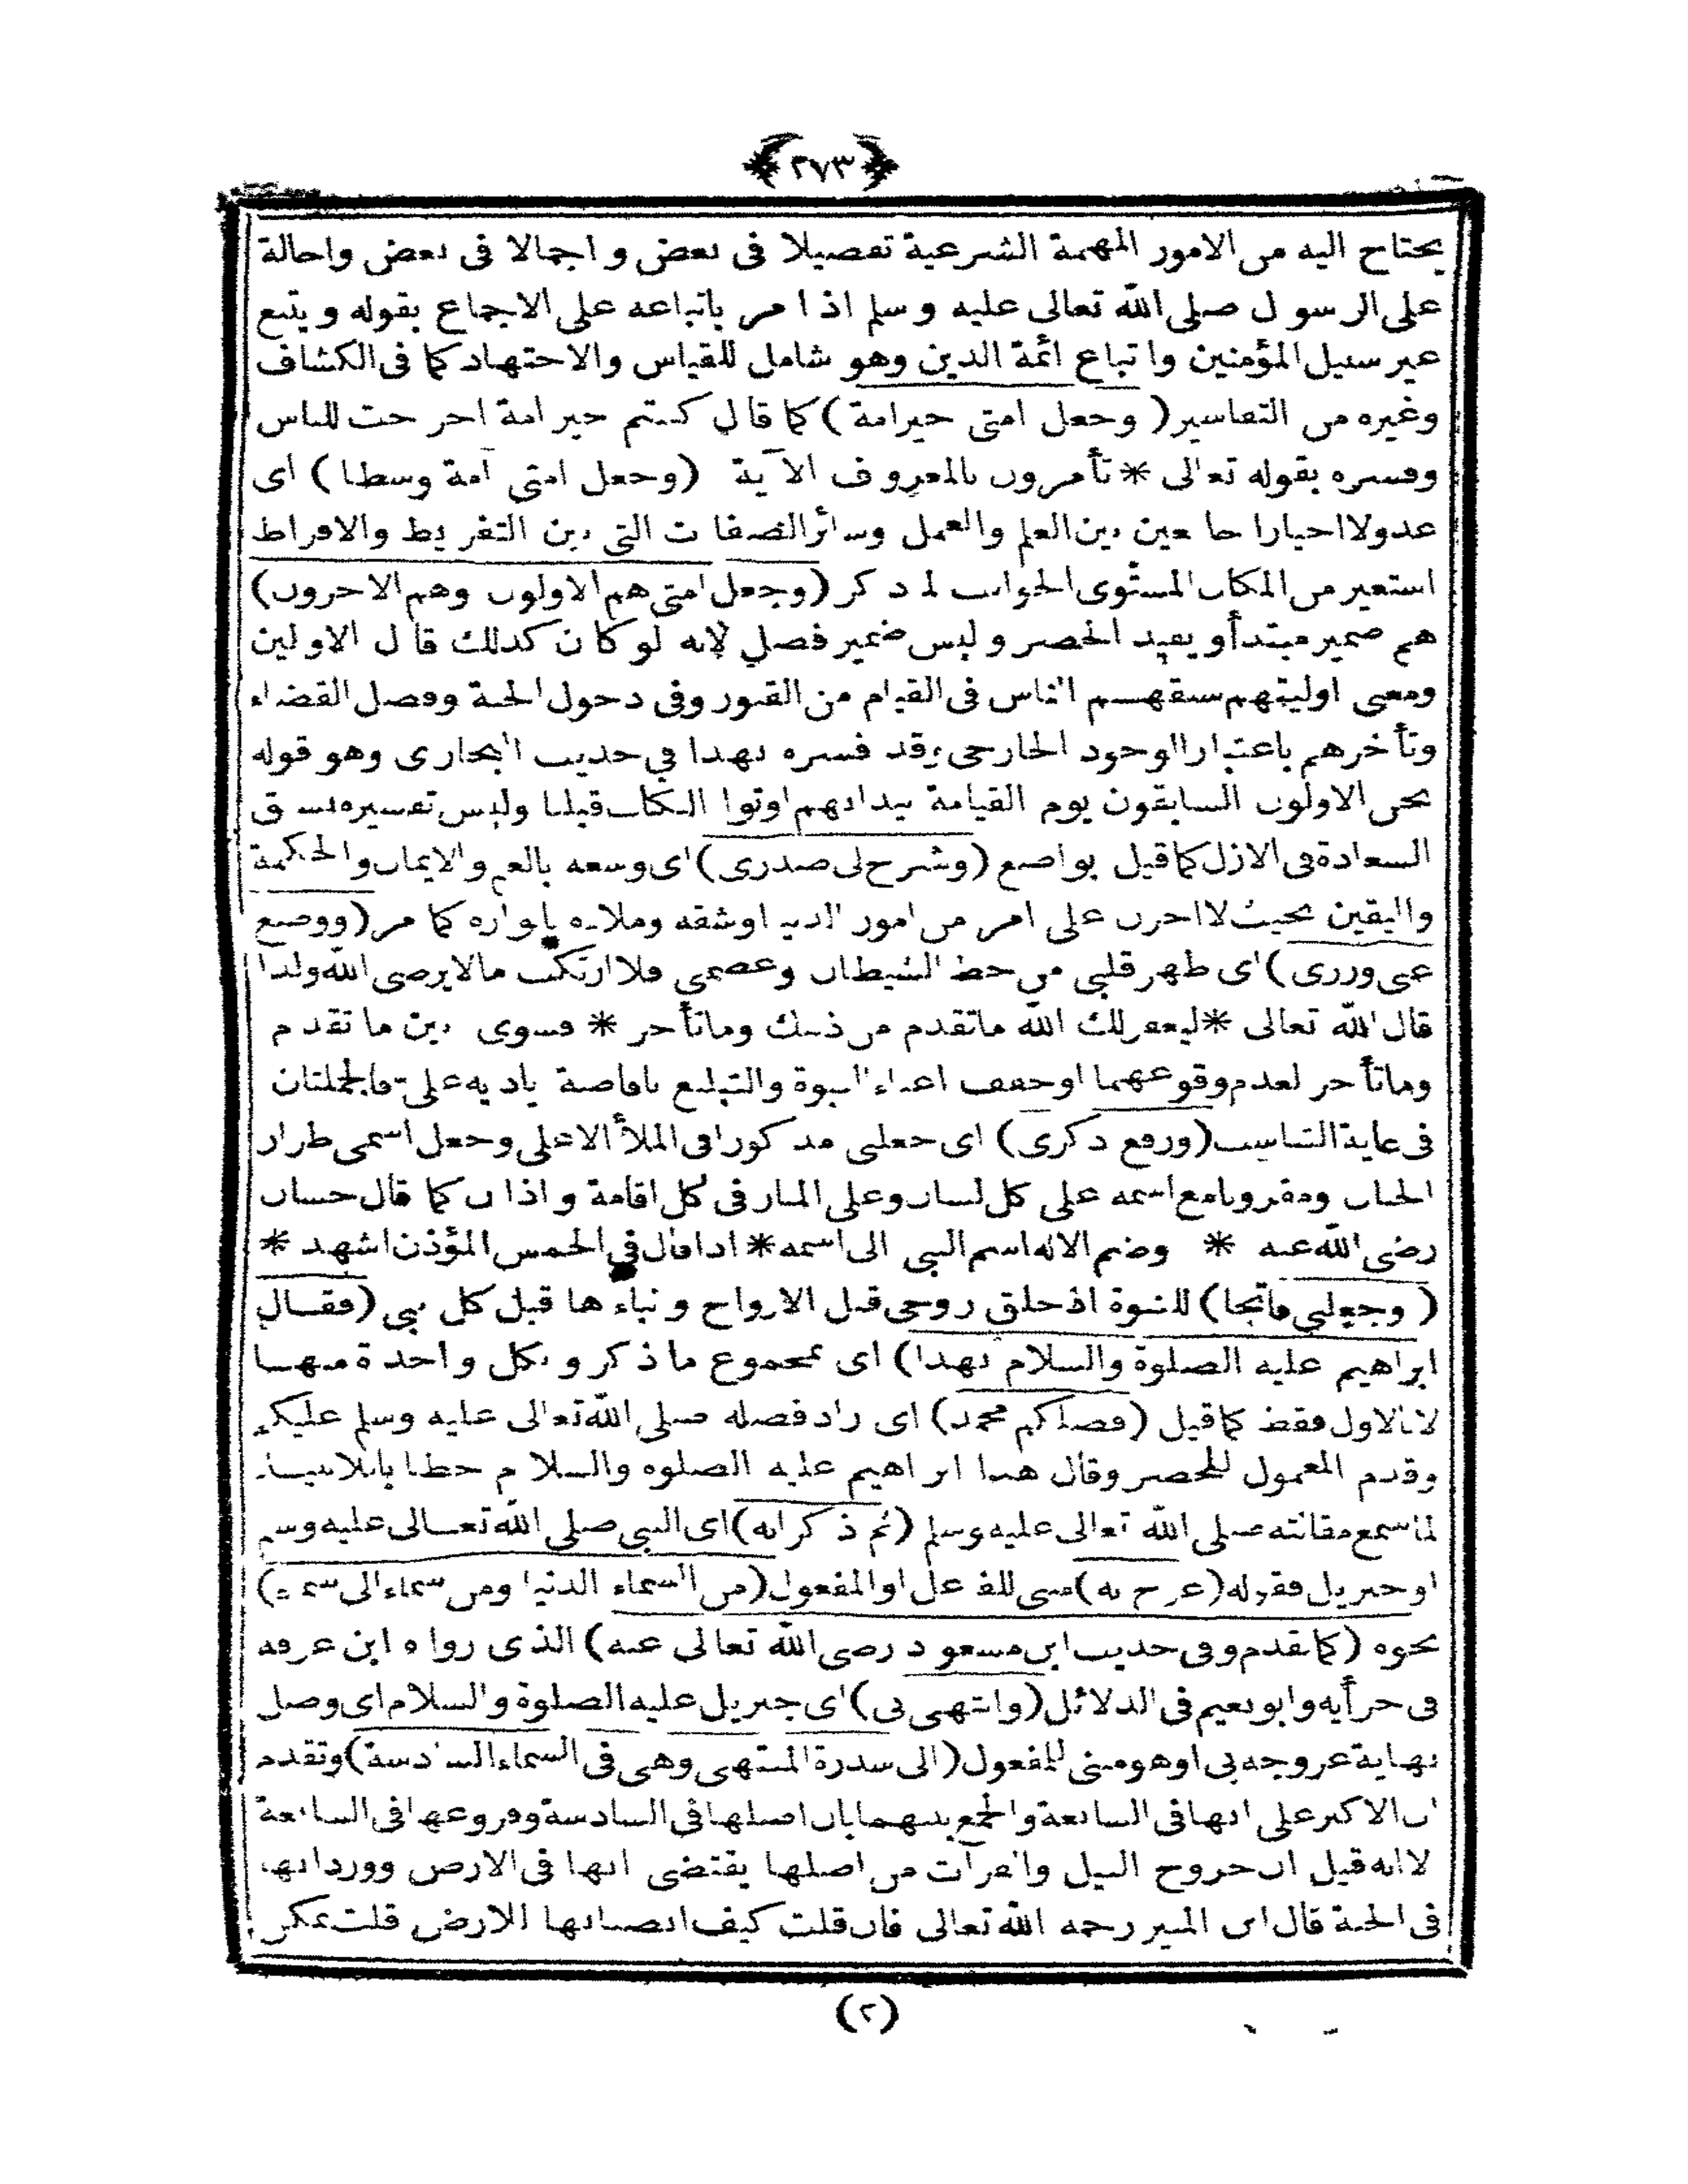 ﴿٢٧٣﴾
يحتاج اليه من الامور المهمة الشرعية تفصيلا فى بعض و اجمالا فى بعض واحالة
على الرسو ل صلى الله تعالى عليه و سلم اذ ا مر باتباعه على الاجماع بقوله و يتبع
غير سبيل المؤمنين وا تباع ائمة الدين وهو شامل للقياس والاجتهاد كما فى الكشاف
وغيره من التفاسير ( وجعل امتى خيرامة ) كما قال كنتم خير امة اخر جت للناس
وفسره بقوله تعالى * تأمرون بالمعروف الآية (وجعل امتى امة وسطا ) اى
عدولا اخيارا جا معين بين العلم والعمل وسائر الصفا ت التى بين التفر يط والافراط
استعير من المكان المستوى الجوانب لما ذ كر (وجعل امتى هم الاولون وهم الاخرون)
هم ضمير مبتدأ و يفيد الحصر و ليس ضمير فصل لانه لو كا ن كذلك قا ل الاولين
ومعنى اوليتهم سبقهم الناس فى القيام من القبور وفى دخول الجنة وفصل القضاء
وتأ خرهم باعتبار الوجود الخارجى وقد فسره بهذا فى حديث البخارى وهو قوله
نحن الاولون السابقون يوم القيامة بيد انهم اوتوا الكتاب قبلنا وليس تفسيره بسبق
السعادة فى الازل كما قيل بواضح (وشرح لى صدرى) اى وسعه بالعلم والايمان والحكمة
واليقين بحيث لا احزن على امر من امور الدنيا او شقه وملاءه بانواره كما مر (ووضع
عنى وزرى) اى طهر قلبى من حظ الشيطان وعصمنى فلا ارتكب مالا يرضى الله ولذا
قال الله تعالى *ليغفر لك الله ماتقدم من ذنبك وماتأخر * فسوى بين ما تقد م
وماتأ خر لعدم وقوعهما او خفف اعباء النبوة والتبليغ بافاضة اياديه على فالجملتان
فى غاية التناسب (ورفع ذكرى) اى جعلنى مذ كورا فى الملأ الاعلى وجعل اسمى طراز
الجنان ومقرونا مع اسمه على كل لسان وعلى المنار فى كل اقامة و اذا ن كما قال حسان
رضى الله عنه * وضم الاله اسم النبى الى اسمه * اذا قال فى الخمس المؤذن اشهد *
( وجعلنى فاتحا) للنبوة اذ خلق روحى قبل الارواح و نباء ها قبل كل نبى (فقال
ابراهيم عليه الصلوة والسلام بهذا) اى بمجموع ما ذ كر و بكل و احد ة منها
لا بالاول فقط كما قيل (فضلكم محمد) اى زاد فضله صلى الله تعالى عليه وسلم عليكم
وقدم المعمول للحصر وقال هذا ابر اهيم عليه الصلوه والسلا م خطا با للانبياء
لما سمع مقالته صلى الله تعالى عليه وسلم (ثم ذ كر انه) اى النبى صلى الله تعالى عليه وسلم
او جبريل فقوله (عر ج به) مبنى للفا عل او المفعول (من السماء الدنيا ومن سماء الى سماء)
نحوه (كما تقدم وفى حديث ابن مسعو د رضى الله تعالى عنه) الذى روا ه ابن عرفه
فى جزأيه وابو نعيم فى الدلائل (وانتهى بى) اى جبريل عليه الصلوة والسلام اى وصل
نهاية عروجه بى او هو مبنى للمفعول (الى سدرة المنتهى وهى فى السماء السادسة) وتقدم
ان الاكبر على انها فى السابعة والجمع بينهما بان اصلها فى السادسة وفروعها فى السابعة
لا انه قيل ان خروج النيل والفرات من اصلها يقتضى انها فى الارض وورد انها
فى الجنة قال ابن المنير رحمه الله تعالى فان قلت كيف الارض قلت يمكن
(٢)